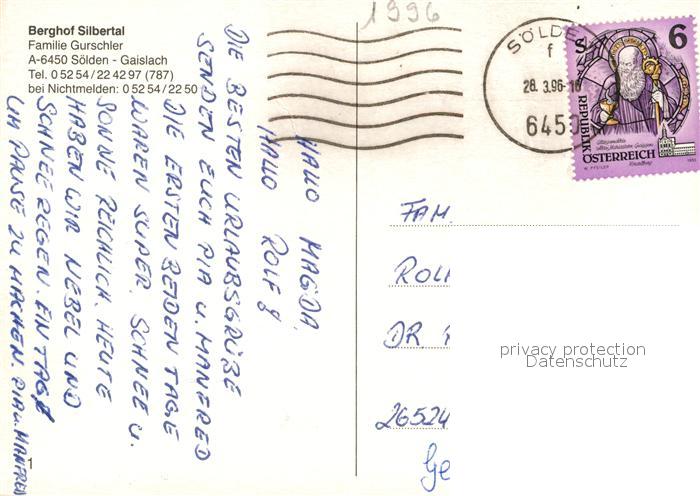 1996
Berghof Silbertal
Familie Gurschler
A-6450 Sölden - Gaislach
Tel. 0 52 54 / 22 42 97 (787)
bei Nichtmelden: 0 52 54 / 22 50
HALLO MAGDA,
HALLO ROLF!
DIE BESTEN URLAUBSGRÜßE
SENDEN EUCH PIA U. MANFRED
DIE ERSTEN BEIDEN TAGE
WAREN SUPER. SCHNEE U.
SONNE REICHLICH. HEUTE
HABEN WIR NEBEL UND
SCHNEEREGEN. EIN TAG
UM PAUSE ZU MACHEN. PIA U. MANFRED
1
SÖLDE
f
28.3.96-16
645
S 6
REPUBLIK
ÖSTERREICH
FAM.
ROL
DR.
26524
Ge
privacy protection
Datenschutz